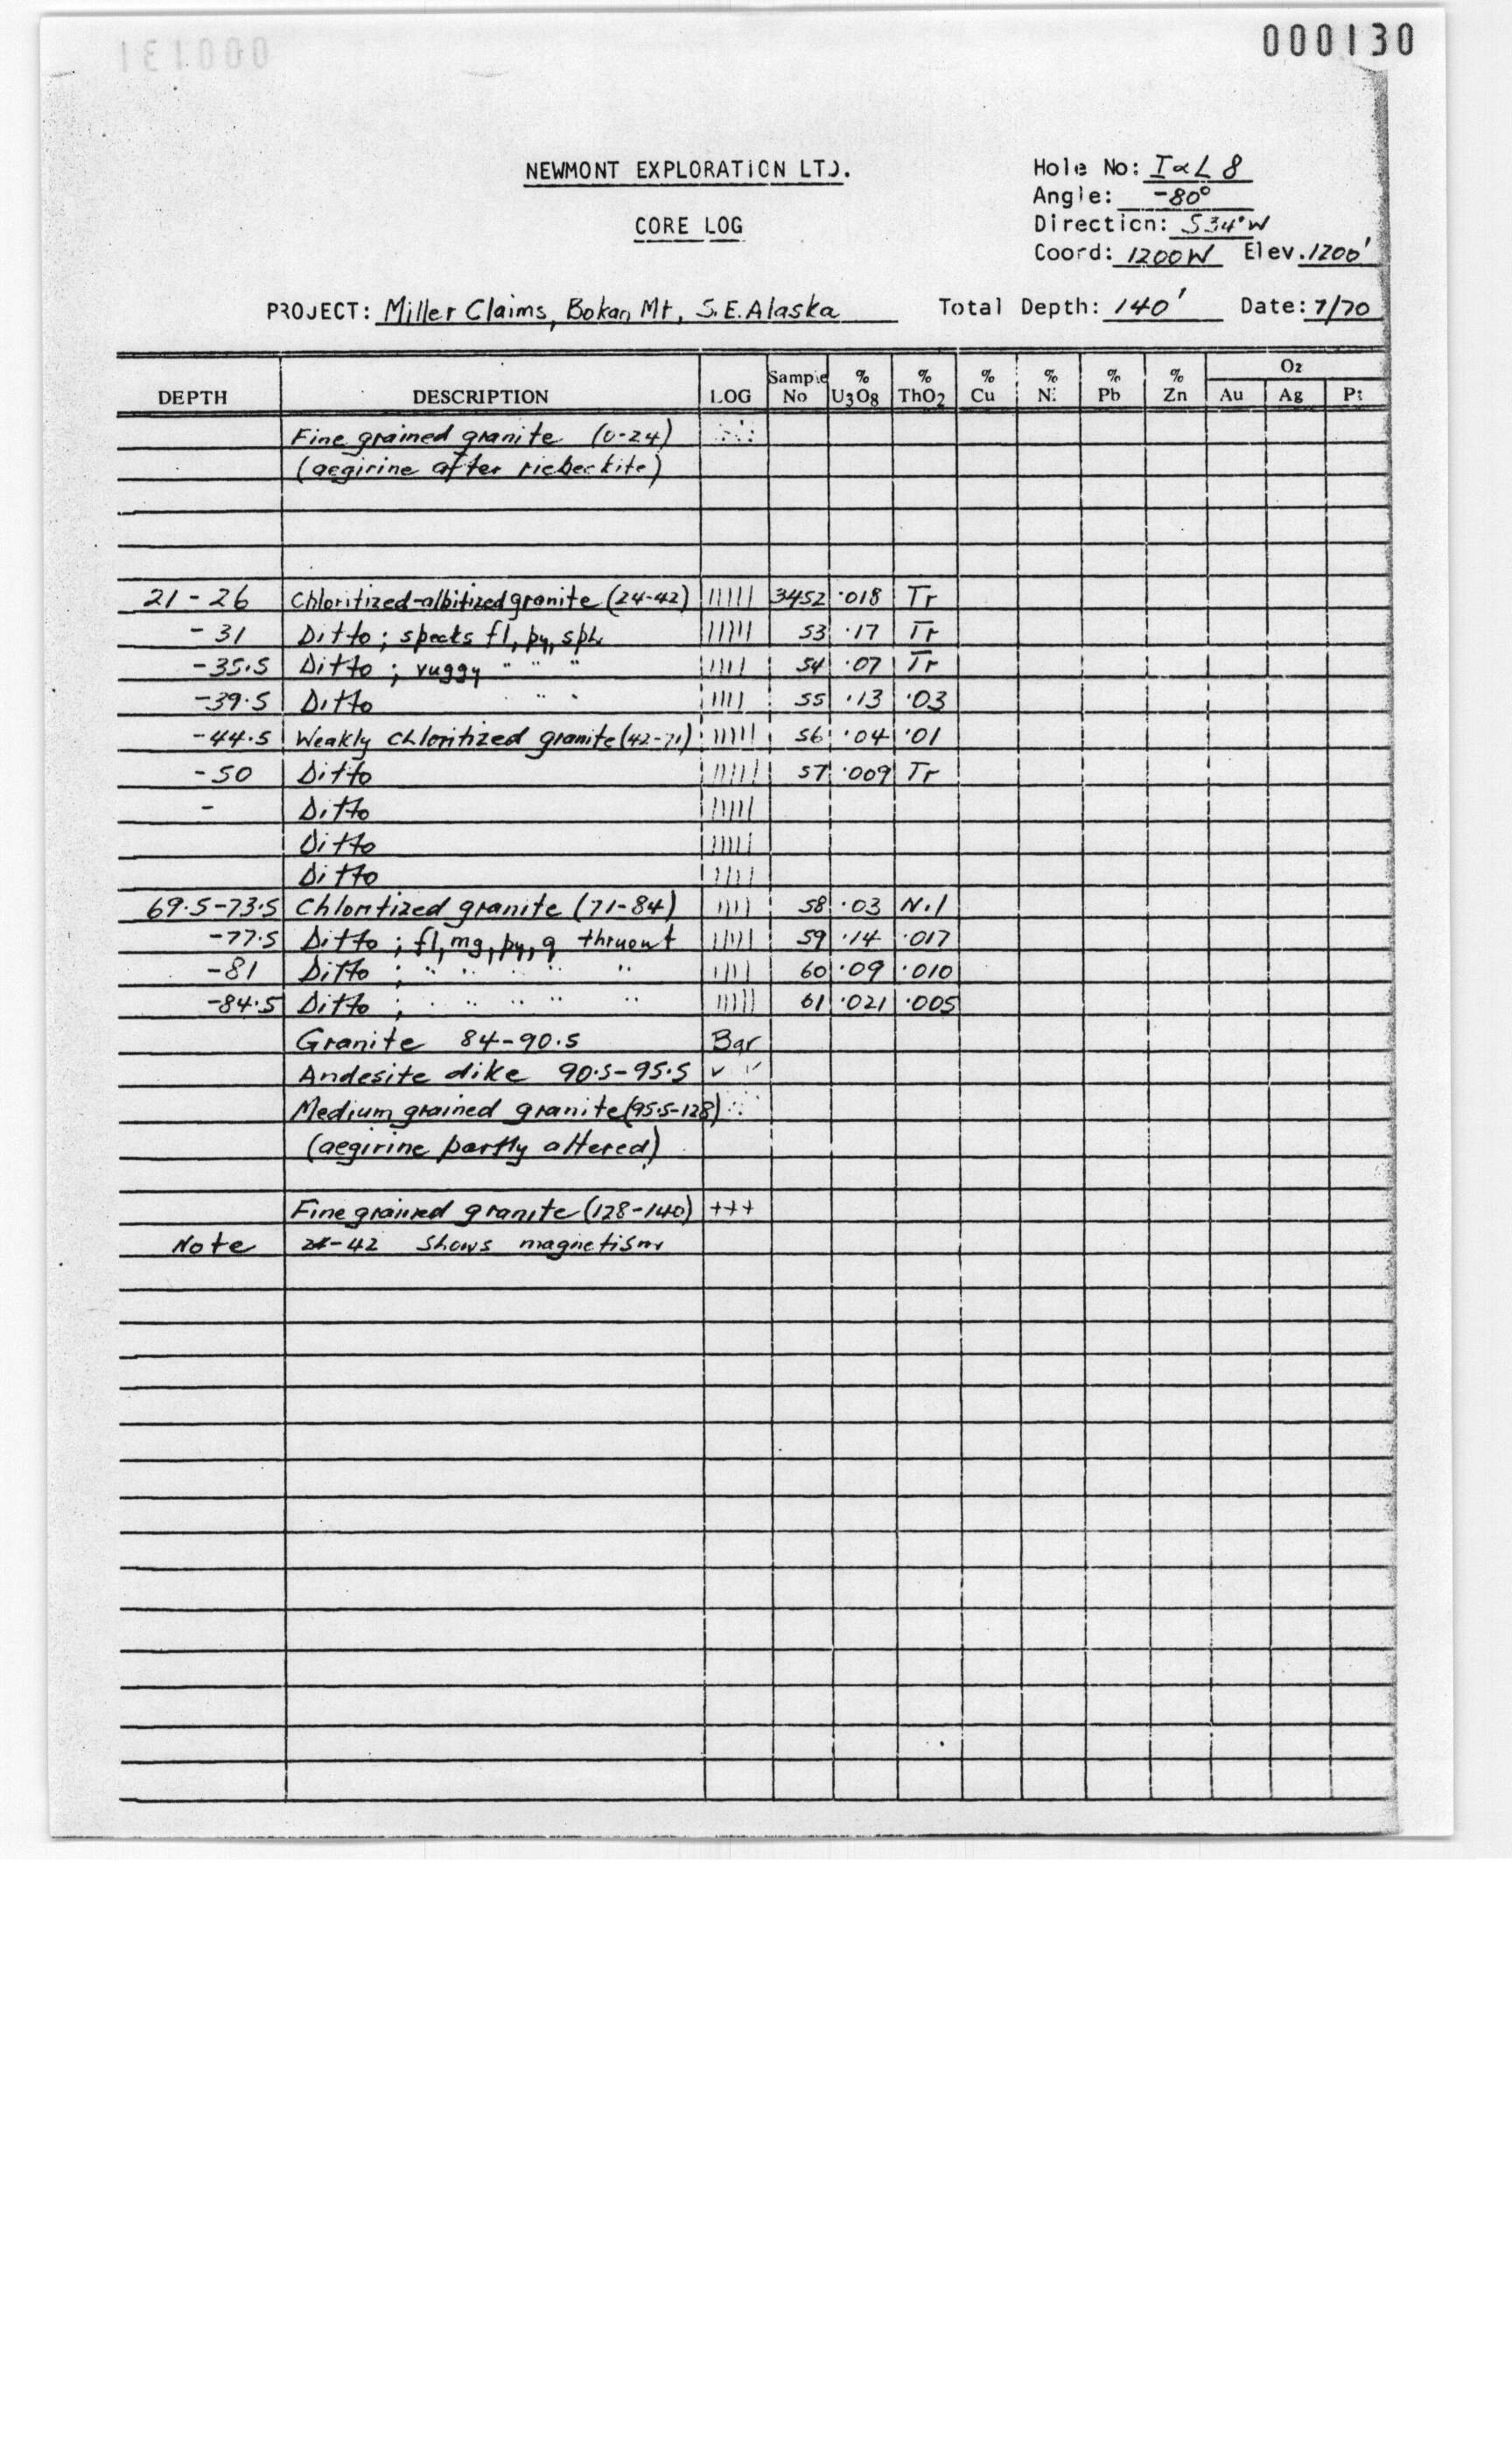 000130
000131
NEWMONT EXPLORATION LTD.
CORE LOG
Hole No: I∝L 8
Angle: -80°
Direction: S34°W
Coord: 1200W Elev. 1200'
PROJECT: Miller Claims, Bokan Mt, S.E. Alaska Total Depth: 140' Date: 7/70
DEPTH DESCRIPTION LOG Sample No % U3O8 % ThO2 % Cu % Ni % Pb % Zn Oz Au Ag Pt
Fine grained granite (0-24)
(aegirine after riebeckite)
21 - 26 Chloritized-albitized granite (24-42) 3452 ·018 Tr
- 31 Ditto; specks fl, py, sph 53 ·17 Tr
-35·5 Ditto; vuggy " " " 54 ·07 Tr
-39·5 Ditto " " 55 ·13 ·03
-44·5 Weakly chloritized granite (42-71) 56 ·04 ·01
-50 Ditto 57 ·009 Tr
- Ditto
Ditto
Ditto
69·5-73·5 Chloritized granite (71-84) 58 ·03 Nil
-77·5 Ditto; fl, mg, py, q thruout 59 ·14 ·017
-81 Ditto; " " " " " 60 ·09 ·010
-84·5 Ditto; " " " " " 61 ·021 ·005
Granite 84-90·5 Bar
Andesite dike 90·5-95·5 v v
Medium grained granite (95·5-128)
(aegirine partly altered)
Fine grained granite (128-140) +++
Note 24-42 shows magnetism